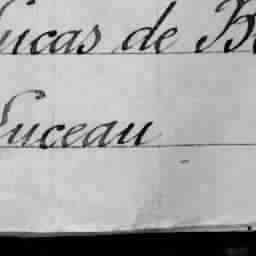 Lucas de B
Luceau